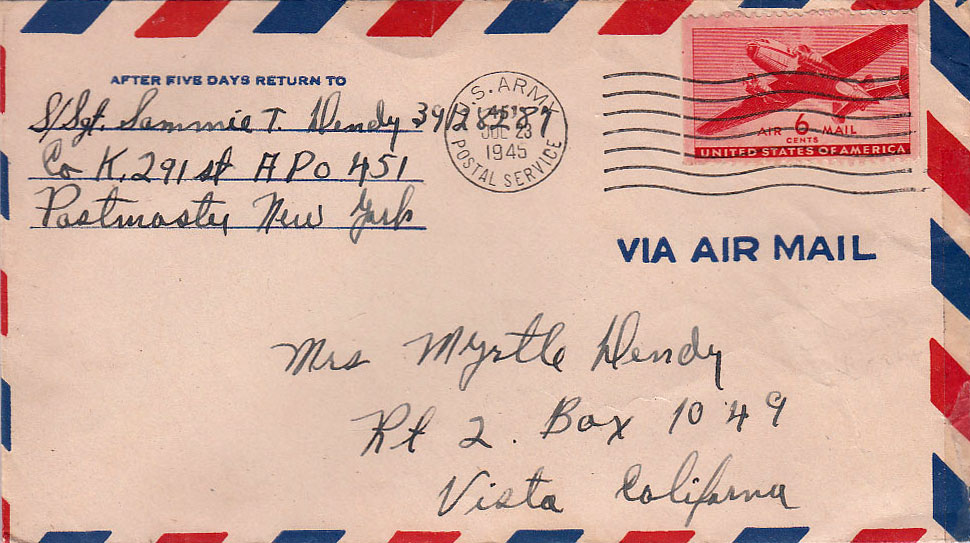 AFTER FIVE DAYS RETURN TO
S/Sgt. Sammie T. Dendy 39128287
Co K, 291 st APO 451
Postmaster New York
U.S. ARMY
JUL 23
1945
POSTAL SERVICE
AIR 6 MAIL
CENTS
UNITED STATES OF AMERICA
VIA AIR MAIL
Mrs Myrtle Dendy
Rt 2. Box 1049
Vista California